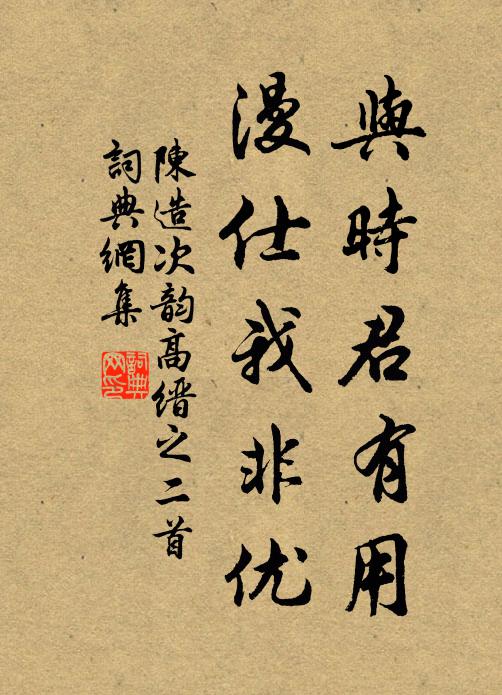 與時君有用
漫仕我非优
陳造次韵高缙之二首
詞典網集
詞典网印